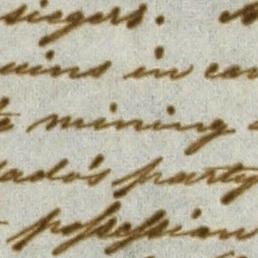 siegers.
uins in
mining
ado's party
possession